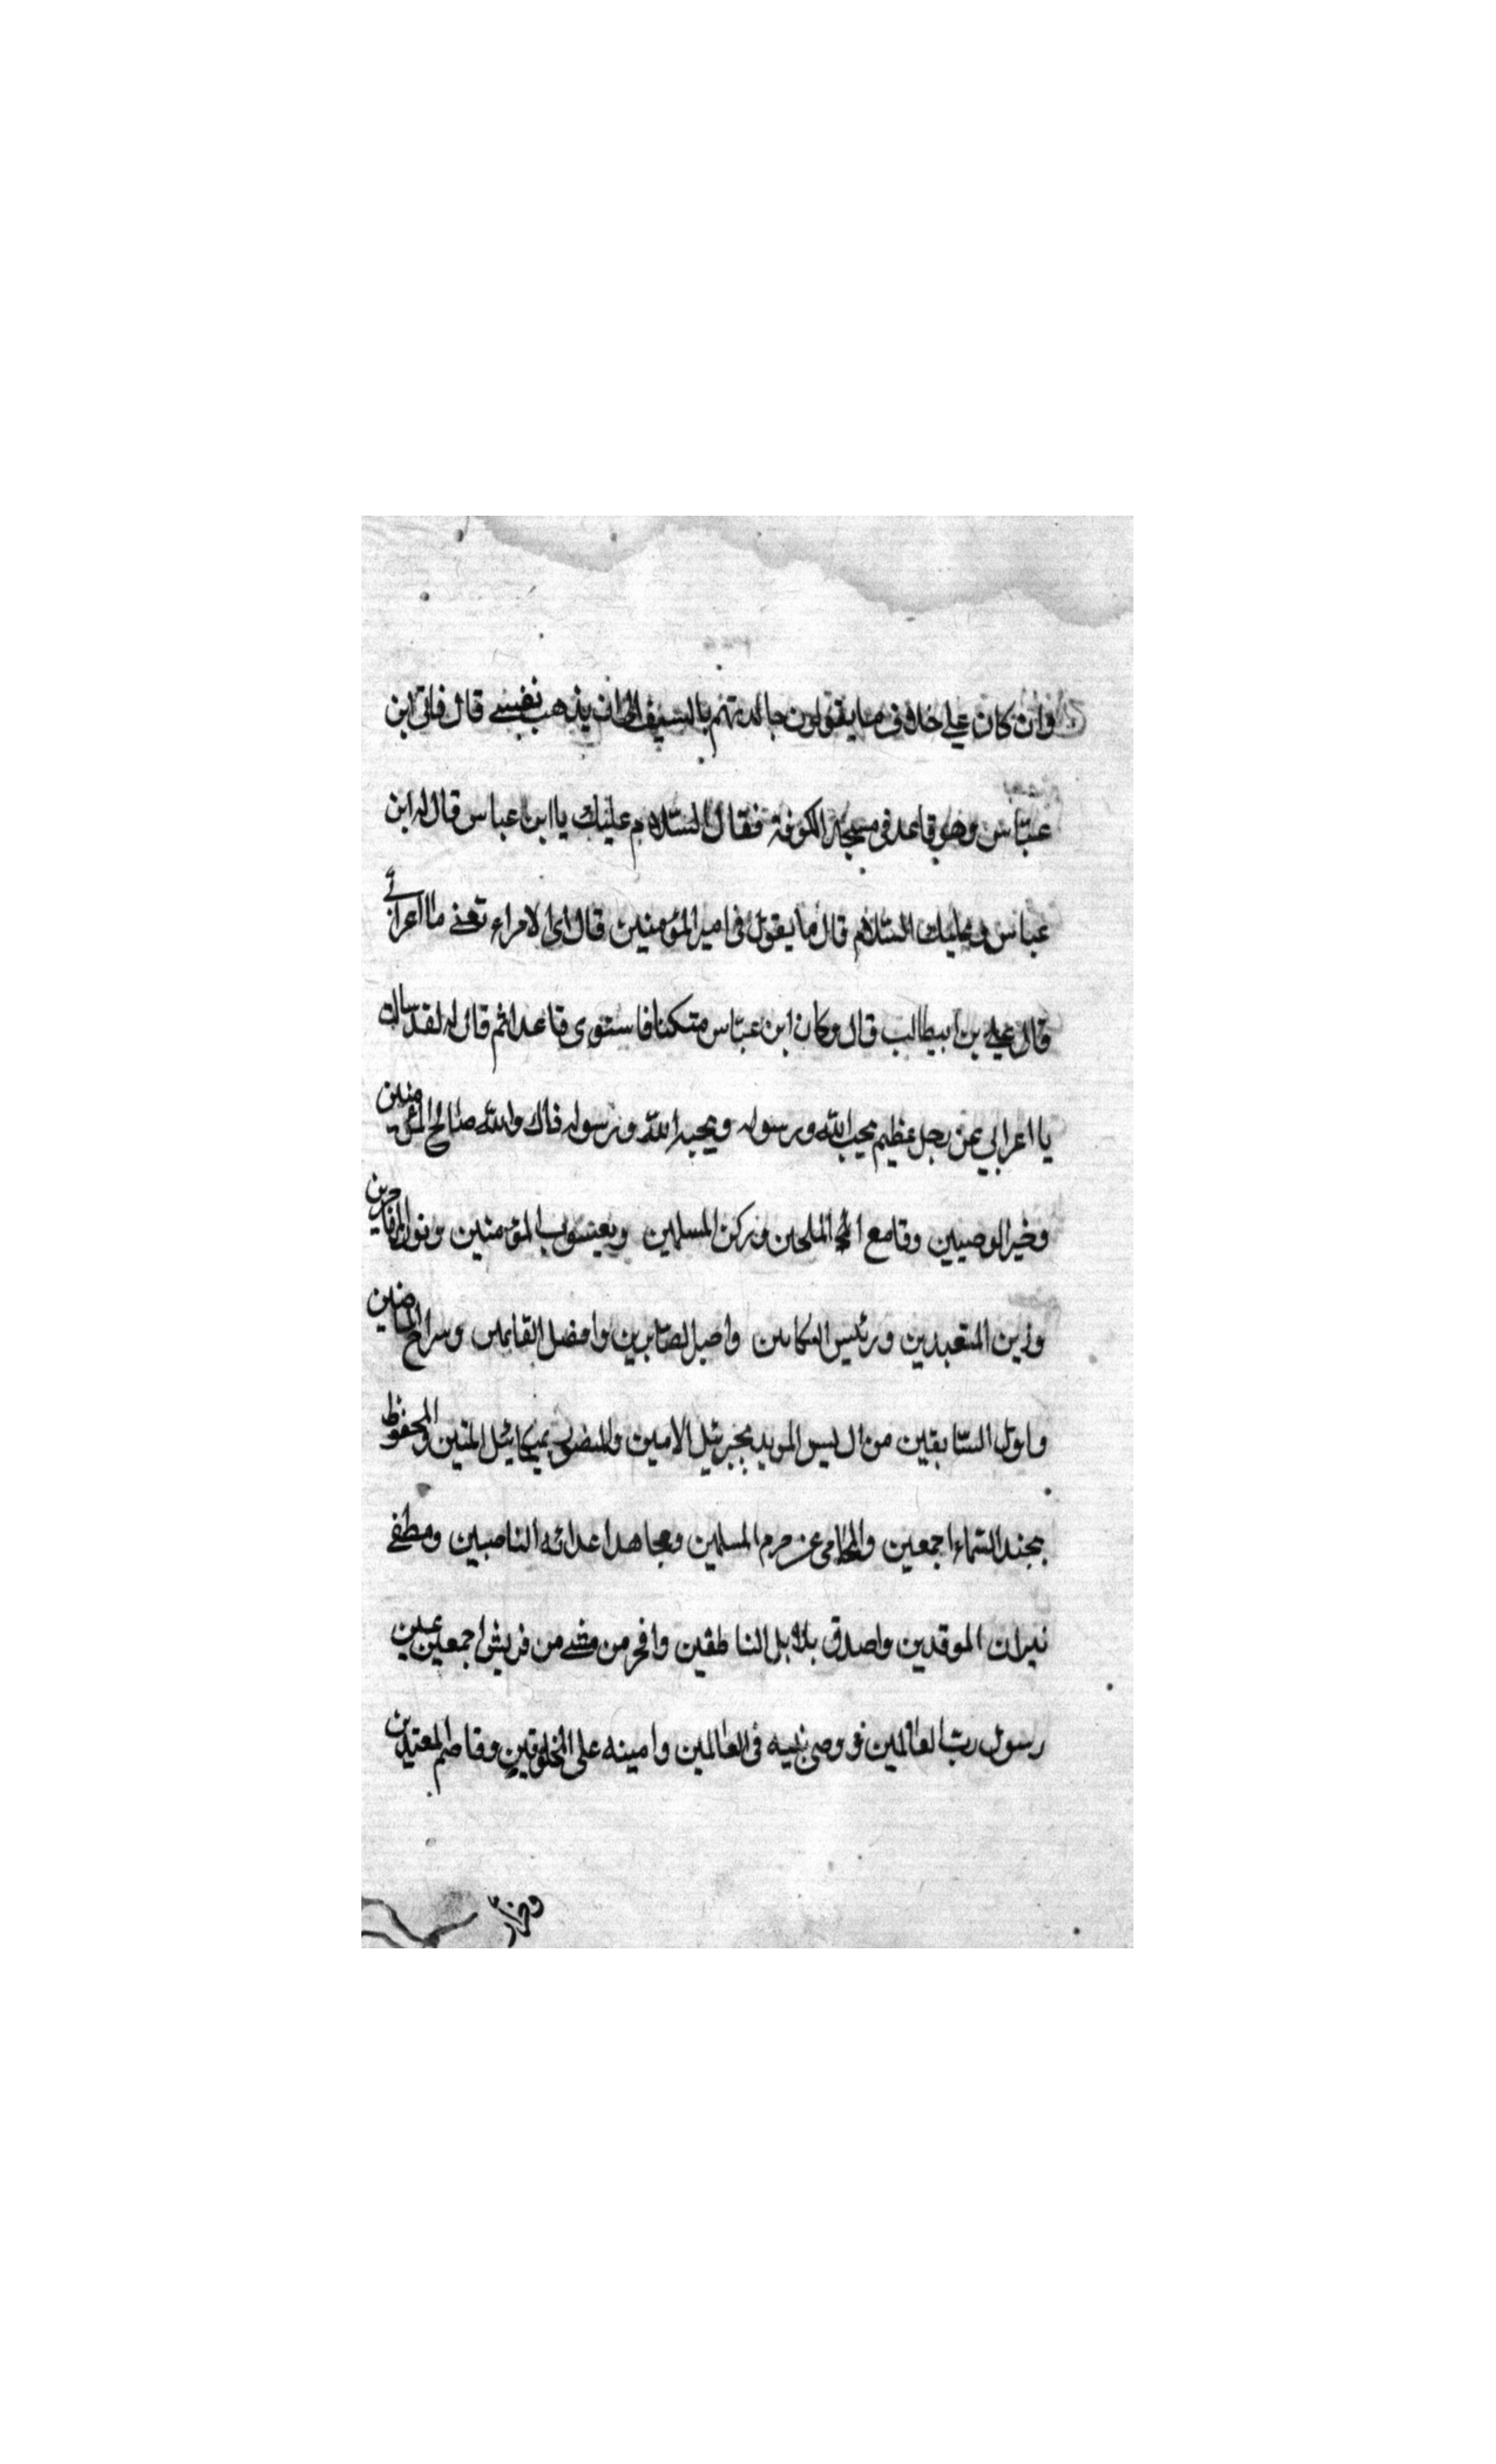 وان كان علي خلاف ما يقولون جالدتهم بالسيف الي ان يذهب نفسي قال فاتي ابن
عباس وهو قاعد في مسجد الكوفة فقال السلام عليك يا ابن عباس قال له ابن
عباس وعليك السلام قال ما يقول في امير المؤمنين قال اي الامراء تعني يا اعرابي
قال علي بن ابيطالب قال وكان ابن عباس متكئا فاستوي قاعدا ثم قال له لقد سالت
يا اعرابي عن رجل عظيم يحب الله ورسوله ويحبه الله ورسوله ذاك والله صالح المؤمنين
وخير الوصيين وقامع الملحدين وركن المسلمين ويعسوب المؤمنين ونور المهاجرين
وزين المتعبدين ورئيس البكائين واصبر الصابرين وافضل القائمين وسراج الماضين
واول السابقين من ال يس المويد بجبرئيل الامين والمنصور بميكائيل المتين والمحفوظ
بجند السماء اجمعين والمحامي عن حرم المسلمين ومجاهد اعدائه الناصبين ومطفي
نيران الموقدين واصدق بلابل الناطقين وافخر من مشي من قريش اجمعين عين
رسول رب العالمين ووصي نبيه في العالمين وامينه علي المخلوقين وقاصم المعتدين